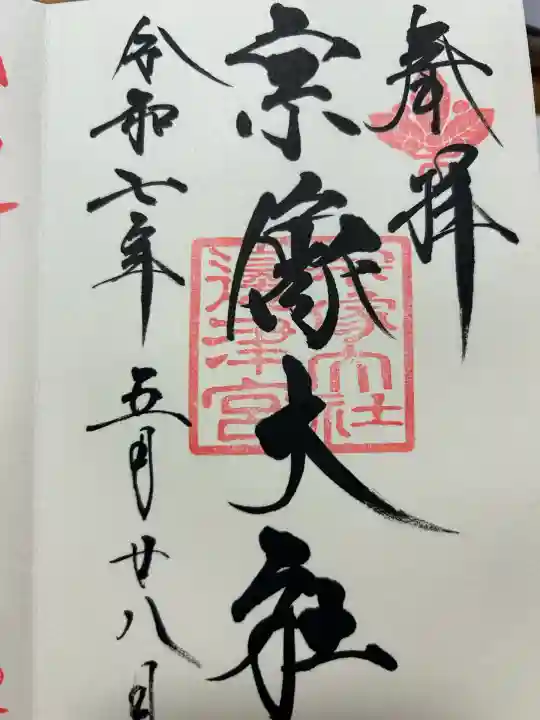 奉拝
宗像大社
宗像大社
邊津宮
令和七年五月廿八日